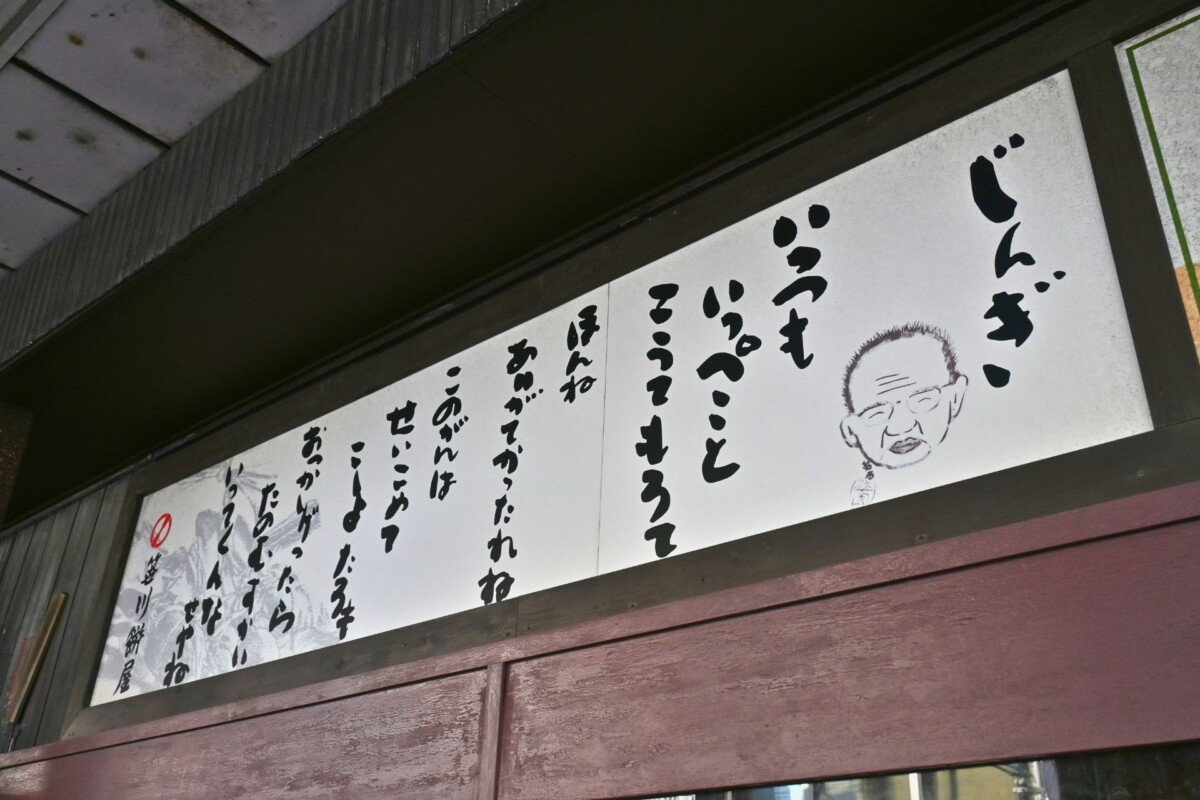 じんぎ、
いつも
いっぺこと
こうてもろて
ほんね
ありがてかったれね
このがんは
せいこめて
こしよ
おっかしげったら
たのむすかい
いってくんな
せやね
笹川餅屋